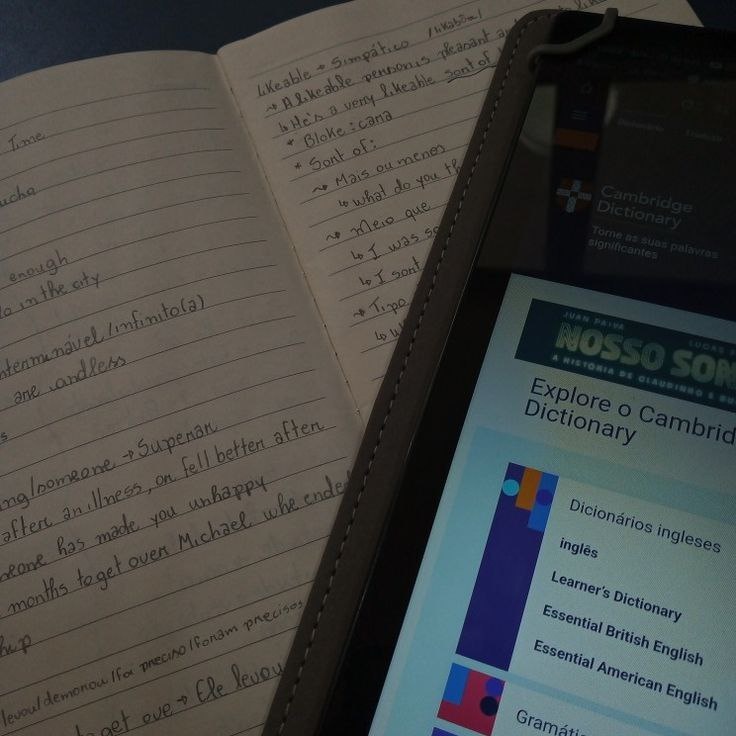 Time
ucha
enough
in the city
interminável/infinito(a)
are endless
s
ng/someone → Superar
after an illness, or fell better after
meone has made you unhappy
months to get over Michael whe ended
hip
levou/demorou/foi preciso/foram precisos
get ove → Ele levou
Likeable → Simpático /likəbəl/
→ A likeable person is pleasant and
↳ He's a very likeable sort of
* Bloke: cara
* Sort of:
→ Mais ou menos
↳ what do you th
→ Meio que
↳ I was so
↳ I sort
→ Tipo
Cambridge
Dictionary
Torne as suas palavras
significantes
JUAN PAIVA LUCAS
NOSSO SON
A HISTÓRIA DE CLAUDINHO E BU
Explore o Cambrid
Dictionary
Dicionários ingleses
inglês
Learner's Dictionary
Essential British English
Essential American English
Gramátic